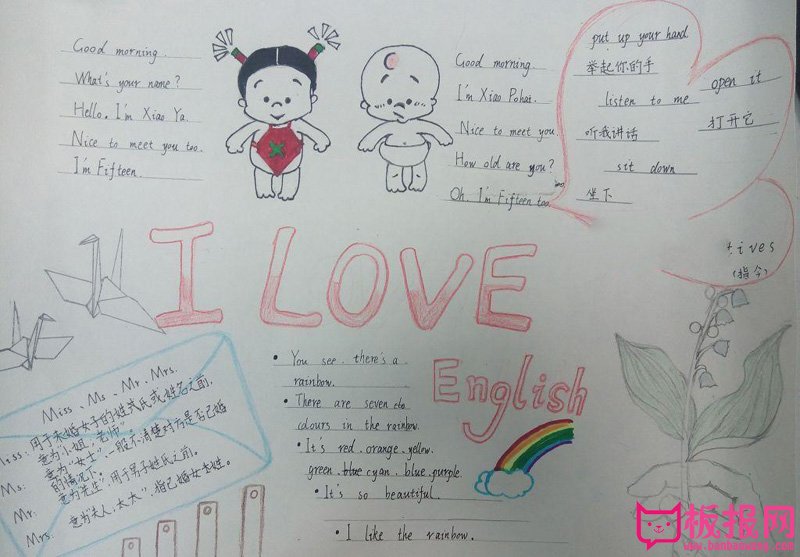 Good morning.
What's your name?
Hello. I'm Xiao Ya.
Nice to meet you too.
I'm Fifteen.
Good morning.
I'm Xiao Pohai.
Nice to meet you.
How old are you?
Oh, I'm Fifteen too.
put up your hand
举起你的手
listen to me
听我讲话
sit down
坐下
open it
打开它
tives
(指令)
I LOVE
English
You see. there's a
rainbow.
There are seven
colours in the rainbow.
It's red. orange. yellow.
green. blue cyan. blue. purple.
It's so beautiful.
I like the rainbow.
Miss、Ms、Mr、Mrs.
iss: 用于未婚女子的姓式氏或姓名之前.
意为"小姐,老师".
Ms: 意为"女士",一般不清楚对方是否已婚
的情况下.
Mr: 意为"先生",用于男子姓氏之前。
Mrs. 意为"夫人,太太",指已婚女本姓。
板报网
www.banbaowang.com